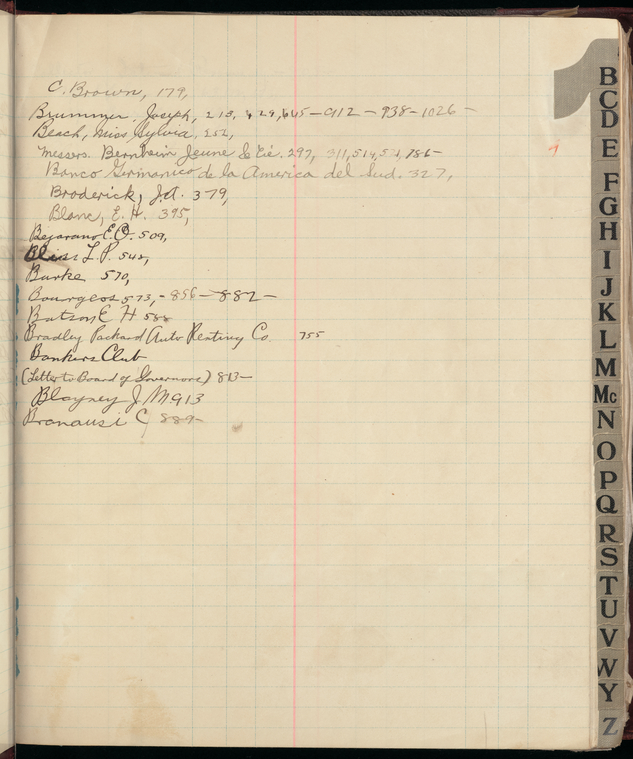 C. Brown, 179,
Brummer, Joseph, 213, 429, 645 - 912 - 938 - 1026 -
Beach, Miss Sylvia, 252,
Messers. Bernheim Jeune & Cié. 297, 311, 514, 786 -
Banco Germanico de la America del Sud. 327,
Broderick, J.A. 379,
Blanc, E. H. 395,
Bejarano E.O. 509,
Bliss L. P. 542,
Burke 570,
Bourgeos 573, - 856 - 882 -
Batson E H 588
Bradley Packard Auto Renting Co. 755
Bankers Club
(Letter to Board of Governors) 843 -
Blayney J M 913
Brancusi C 889 -
B
C
D
E
F
G
H
I
J
K
L
M
Mc
N
O
P
Q
R
S
T
U
V
W
Y
Z